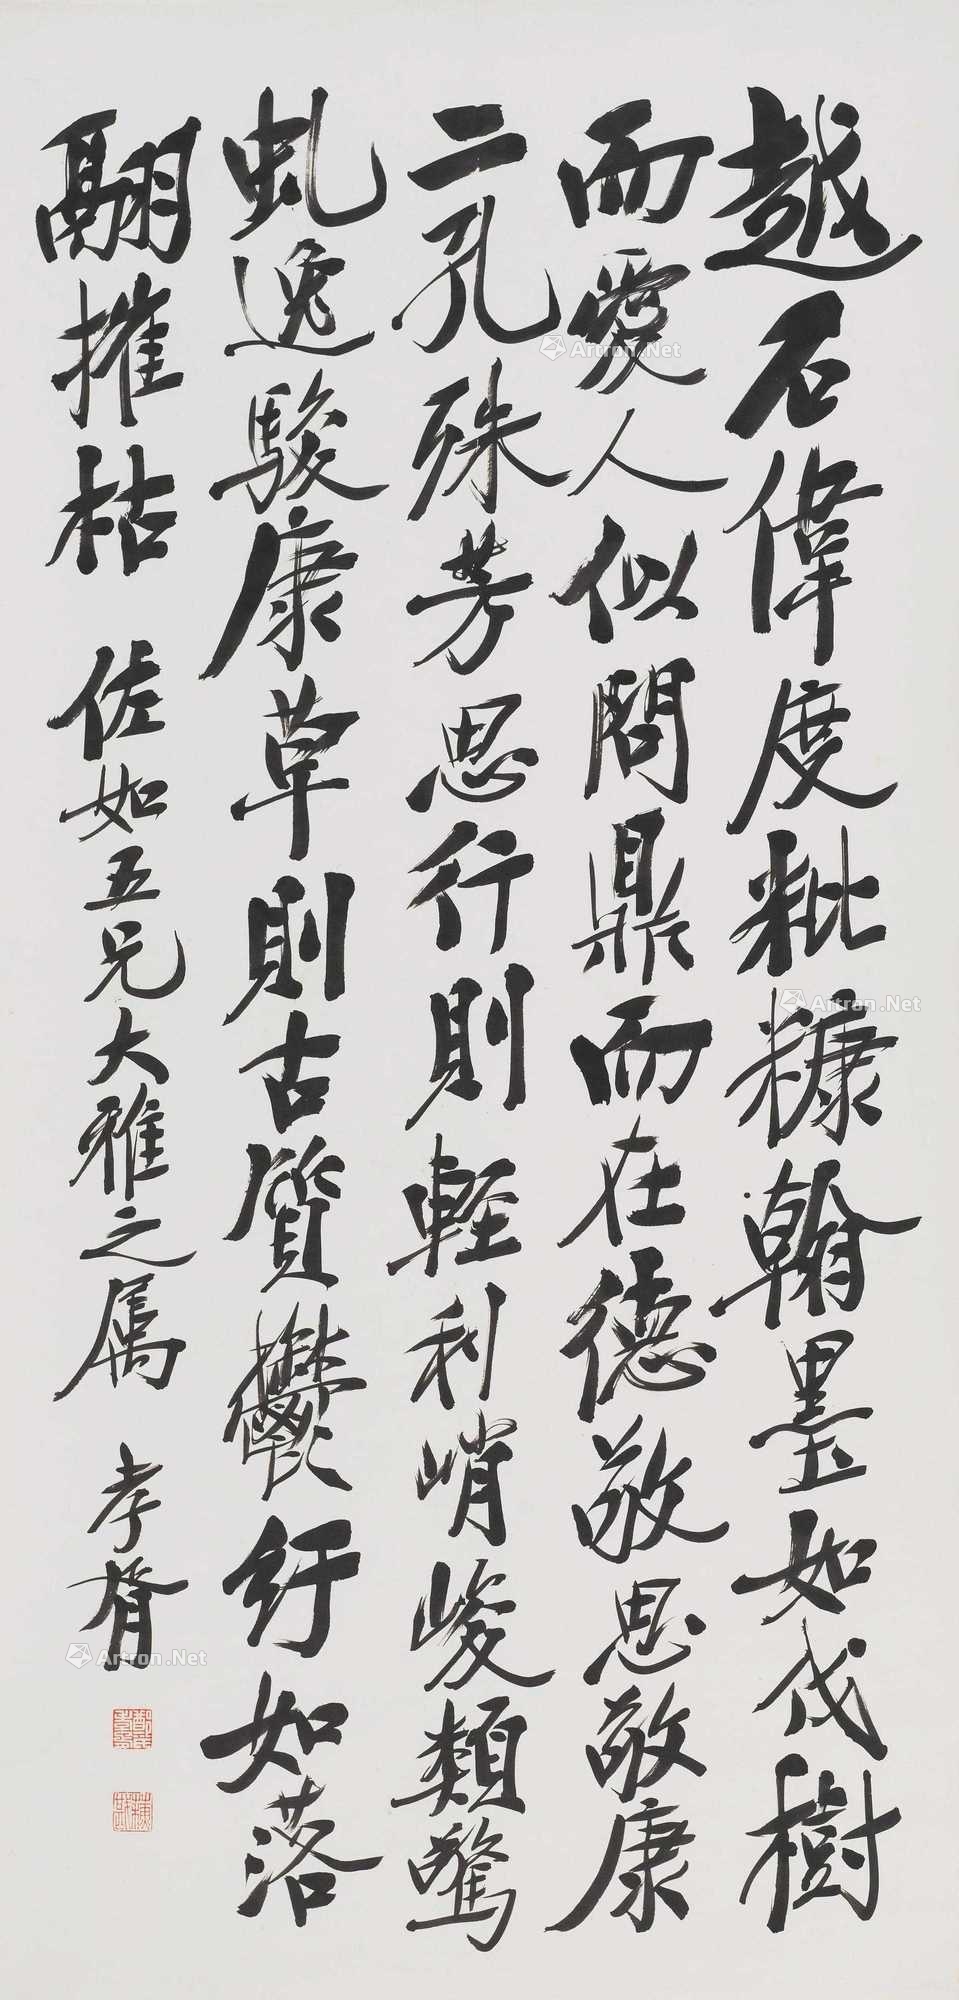 越石偉度粃糠翰墨如伐樹
而愛人似問鼎而在德敬思敬康
二孔殊芳思行則輕利峭峻類驚
虬逸駿康草則古質鬱紆如落
翮摧枯 佐如五兄大雅之属 孝胥
Artron.Net
Artron.Net
Artron.Net